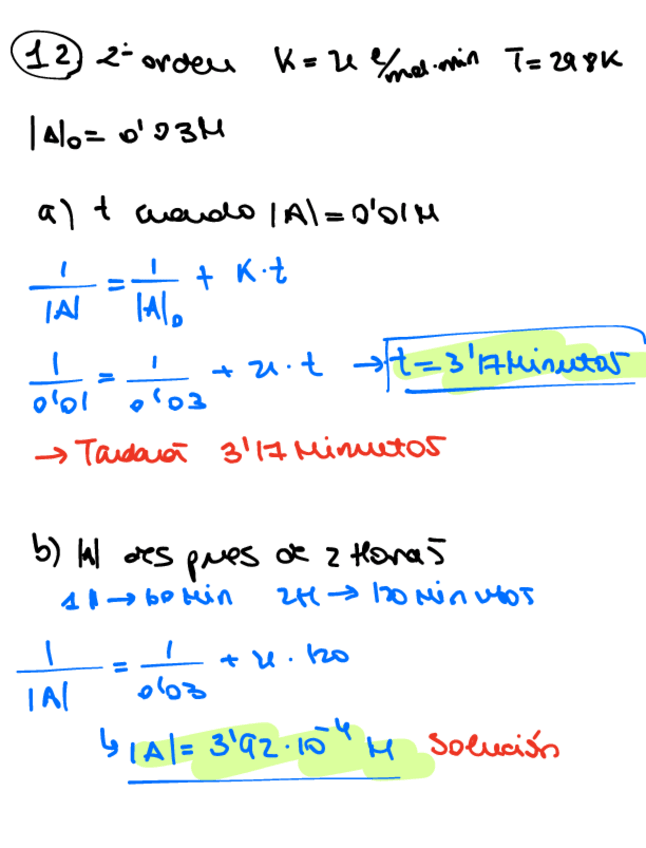 12) 2º orden K = 21 l/mol·min T = 298K
|A|₀ = 0'03M
a) t cuando |A| = 0'01M
1/|A| = 1/|A|₀ + K·t
1/0'01 = 1/0'03 + 21·t → t = 3'17 Minutos
→ Tardará 3'17 Minutos
b) |A| despues de 2 Horas
1H → 60 Min 2H → 120 Minutos
1/|A| = 1/0'03 + 21·120
↳ |A| = 3'92·10⁻⁴ M Solución